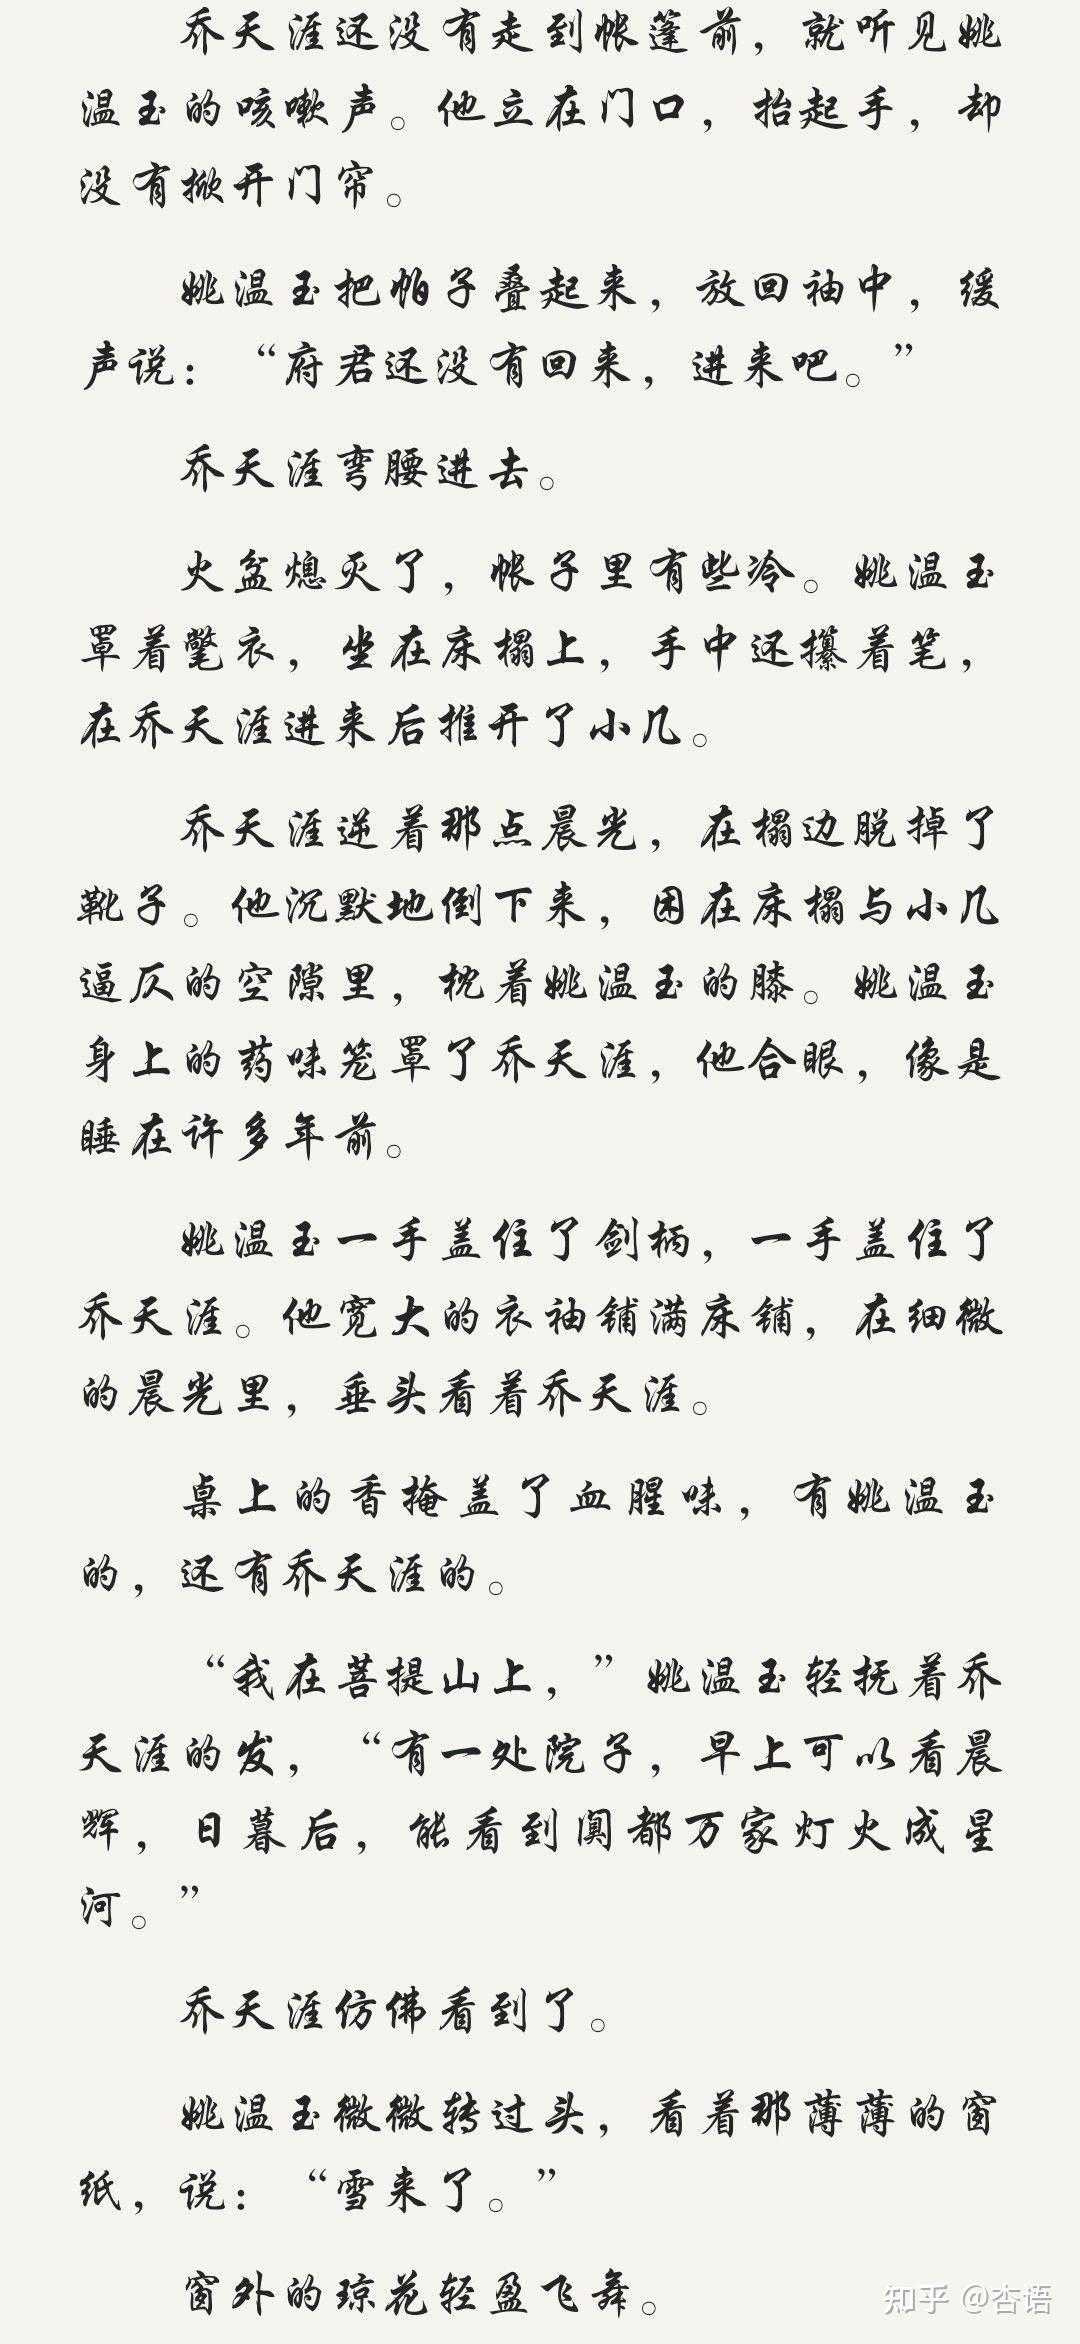 乔天涯还没有走到帐篷前，就听见姚
温玉的咳嗽声。他立在门口，抬起手，却
没有掀开门帘。
姚温玉把帕子叠起来，放回袖中，缓
声说：“府君还没有回来，进来吧。”
乔天涯弯腰进去。
火盆熄灭了，帐子里有些冷。姚温玉
罩着氅衣，坐在床榻上，手中还攥着笔，
在乔天涯进来后推开了小几。
乔天涯逆着那点晨光，在榻边脱掉了
靴子。他沉默地倒下来，困在床榻与小几
逼仄的空隙里，枕着姚温玉的膝。姚温玉
身上的药味笼罩了乔天涯，他合眼，像是
睡在许多年前。
姚温玉一手盖住了剑柄，一手盖住了
乔天涯。他宽大的衣袖铺满床铺，在细微
的晨光里，垂头看着乔天涯。
桌上的香掩盖了血腥味，有姚温玉
的，还有乔天涯的。
“我在菩提山上，”姚温玉轻抚着乔
天涯的发，“有一处院子，早上可以看晨
辉，日暮后，能看到阒都万家灯火成星
河。”
乔天涯仿佛看到了。
姚温玉微微转过头，看着那薄薄的窗
纸，说：“雪来了。”
窗外的琼花轻盈飞舞。
知乎 @杏语